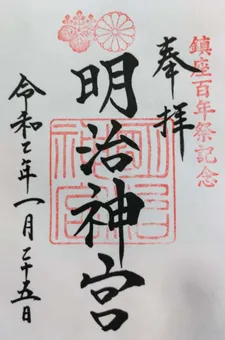 鎮座百年祭記念
奉拝
明治神宮
令和二年一月二十五日
明治神宮